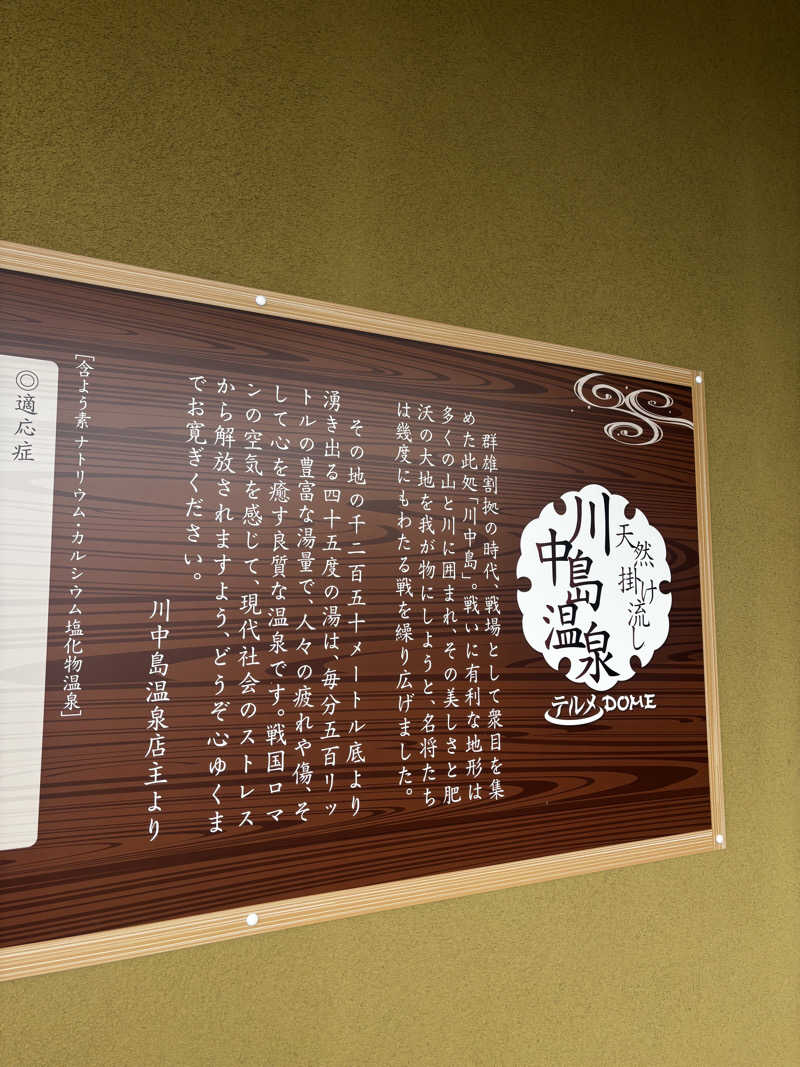 天然
掛け流し
川中島温泉
テルメDOME
群雄割拠の時代、戦場として衆目を集
めた此処「川中島」。戦いに有利な地形は
多くの山と川に囲まれ、その美しさと肥
沃の大地を我が物にしようと、名将たち
は幾度にもわたる戦を繰り広げました。
その地の千二百五十メートル底より
湧き出る四十五度の湯は、毎分五百リッ
トルの豊富な湯量で、人々の疲れや傷、そ
して心を癒す良質な温泉です。戦国ロマ
ンの空気を感じて、現代社会のストレス
から解放されますよう、どうぞ心ゆくま
でお寛ぎください。
川中島温泉店主より
［含よう素 ナトリウム・カルシウム塩化物温泉］
◎適応症